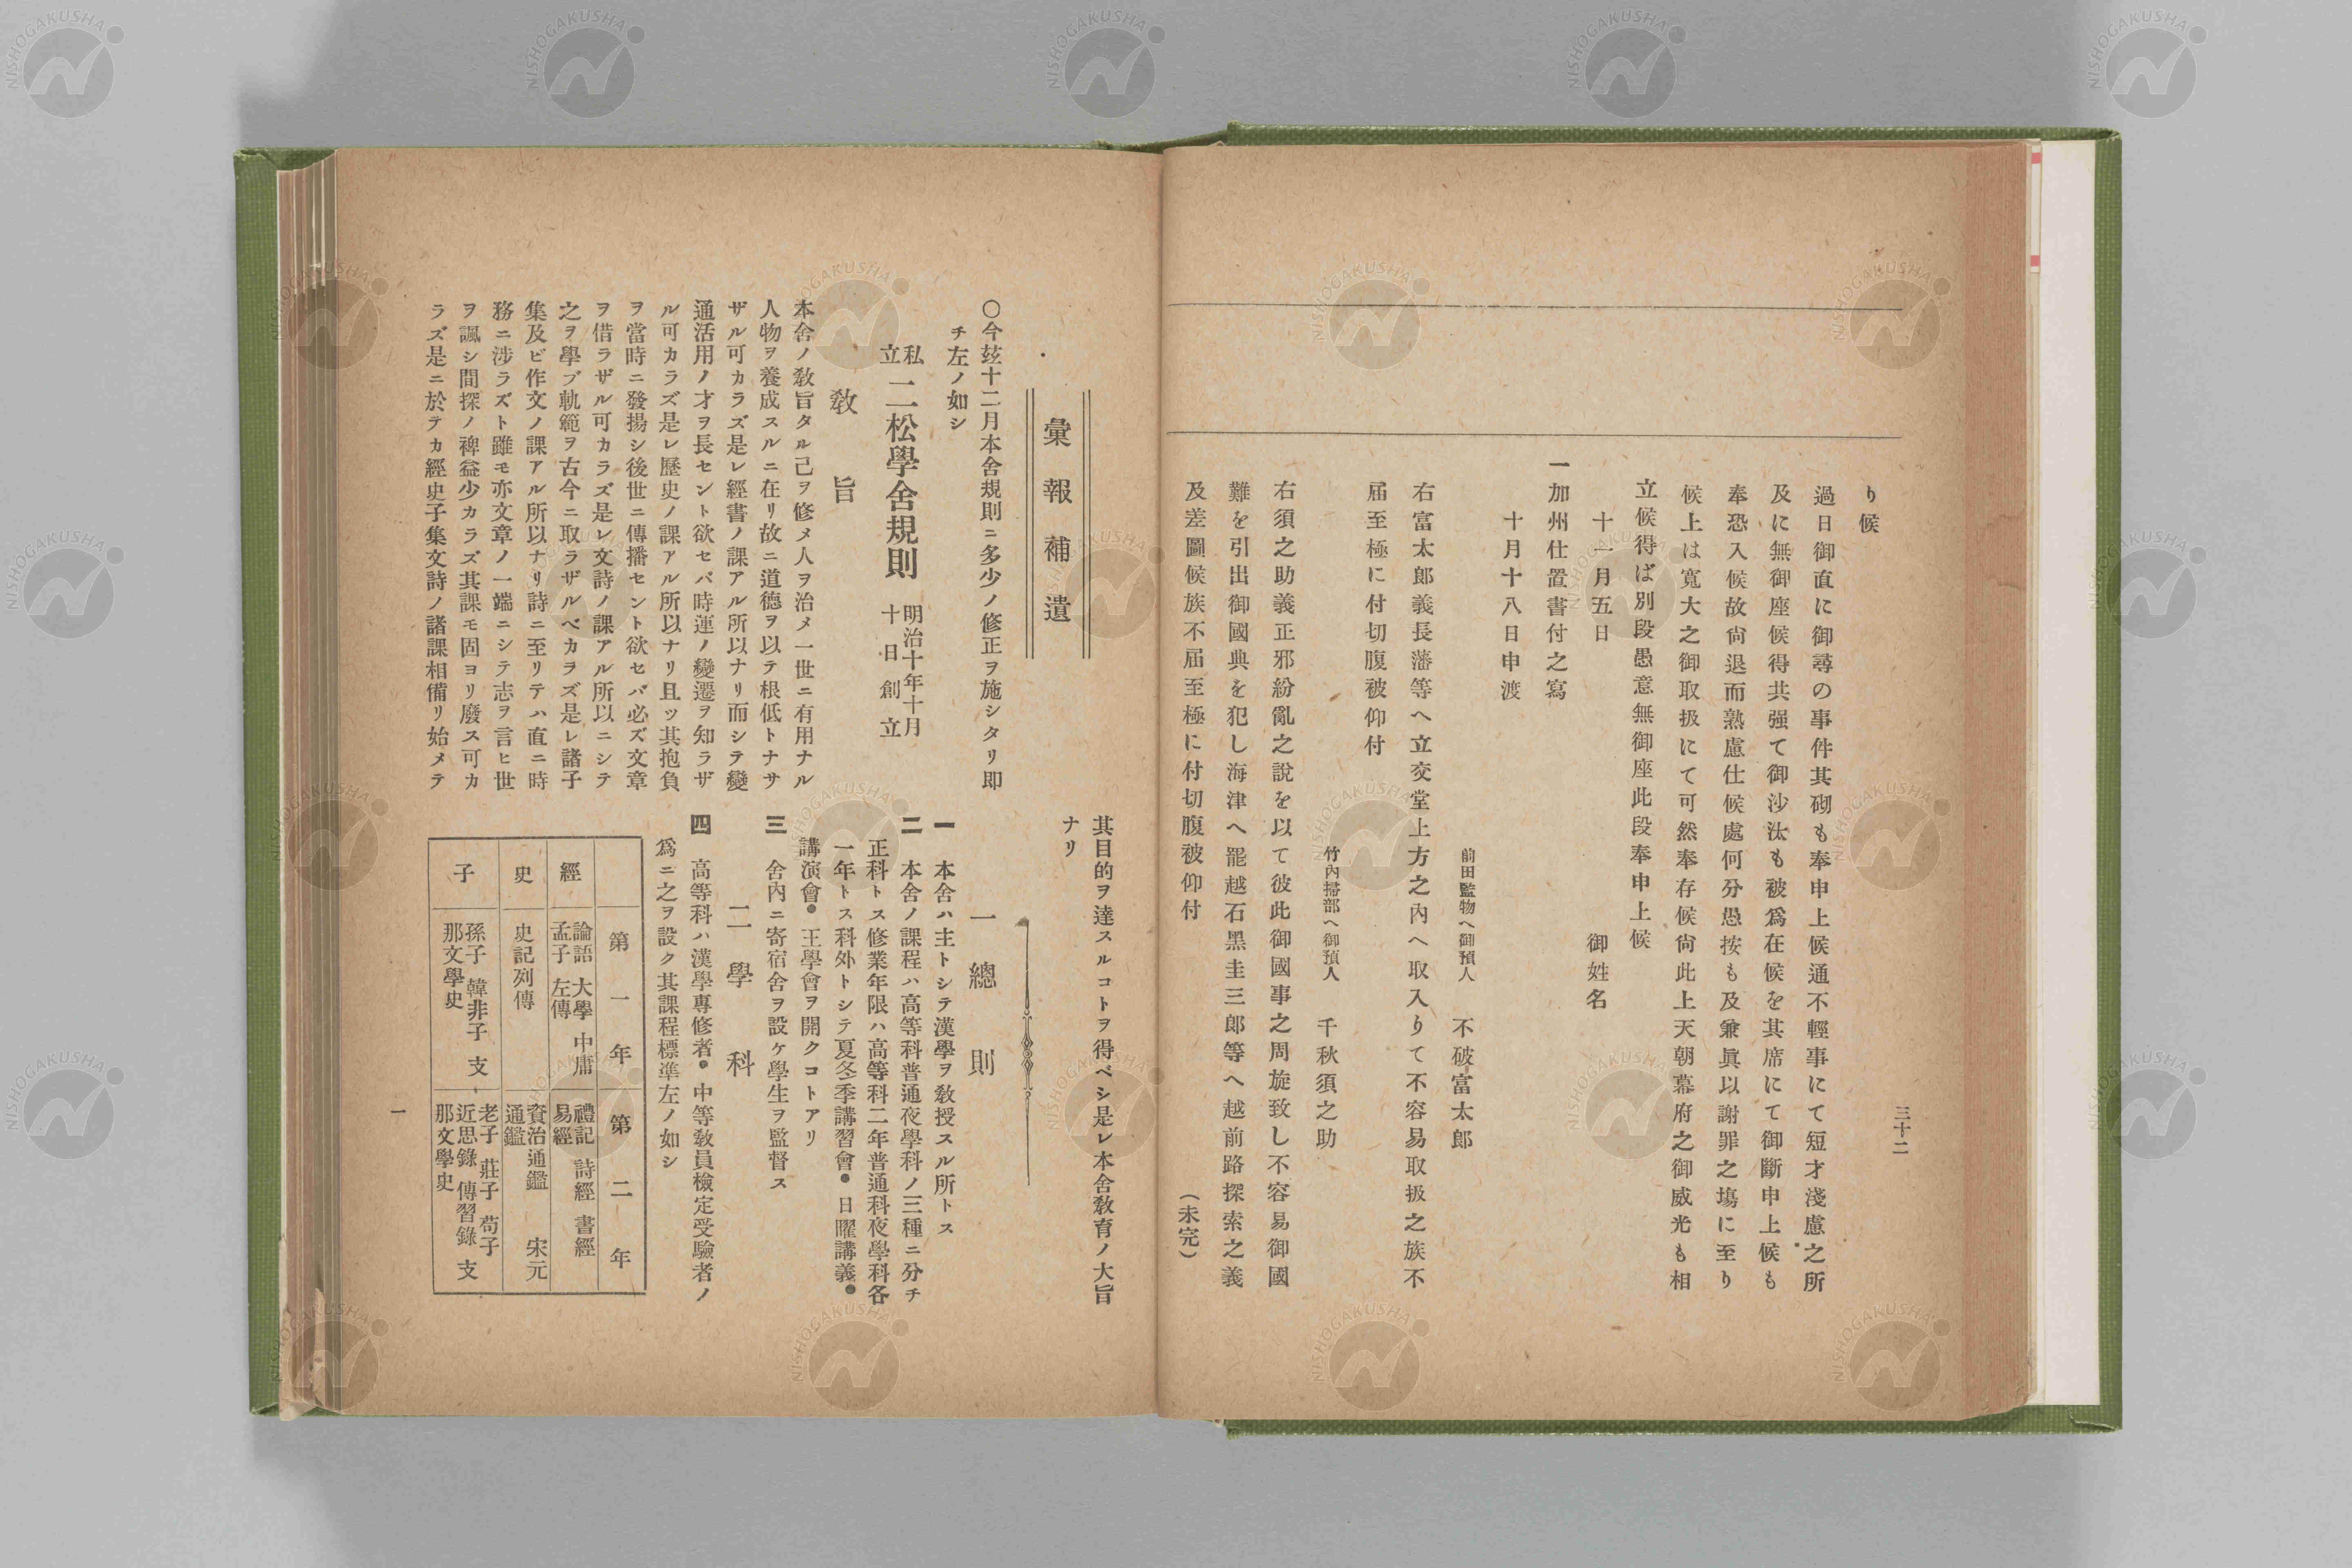 三十二
り候
過日御直に御尋の事件其砌も奉申上候通不輕事にて短才淺慮之所
及に無御座候得共强て御沙汰も被爲在候を其席にて御斷申上候も
奉恐入候故尙退而熟慮仕候處何分愚按も及兼眞以謝罪之塲に至り
候上は寬大之御取扱にて可然奉存候尙此上天朝幕府之御威光も相
立候得ば別段愚意無御座此段奉申上候
十一月五日 御姓名
一加州仕置書付之寫
十月十八日申渡
前田監物へ御預人 不破富太郎
右富太郎義長藩等へ立交堂上方之內へ取入りて不容易取扱之族不
屆至極に付切腹被仰付
竹內掃部へ御預人 千秋須之助
右須之助義正邪紛亂之說を以て彼此御國事之周旋致し不容易御國
難を引出御國典を犯し海津へ罷越石黑圭三郎等へ越前路探索之義
及差圖候族不屆至極に付切腹被仰付 (未完)
彙報補遺
〇今玆十二月本舍規則ニ多少ノ修正ヲ施シタリ卽
チ左ノ如シ
私立 二松學舍規則 明治十年十月十日創立
敎旨
本舍ノ敎旨タル己ヲ修メ人ヲ治メ一世ニ有用ナル
人物ヲ養成スルニ在リ故ニ道德ヲ以テ根低トナサ
ザル可カラズ是レ經書ノ課アル所以ナリ而シテ變
通活用ノ才ヲ長セント欲セバ時運ノ變遷ヲ知ラザ
ル可カラズ是レ歷史ノ課アル所以ナリ且ッ其抱負
ヲ當時ニ發揚シ後世ニ傳播セント欲セバ必ズ文章
ヲ借ラザル可カラズ是レ文詩ノ課アル所以ニシテ
之ヲ學ブ軌範ヲ古今ニ取ラザルベカラズ是レ諸子
集及ビ作文ノ課アル所以ナリ詩ニ至リテハ直ニ時
務ニ涉ラズト雖モ亦文章ノ一端ニシテ志ヲ言ヒ世
ヲ諷シ間探ノ裨益少カラズ其課モ固ヨリ廢ス可カ
ラズ是ニ於テカ經史子集文詩ノ諸課相備リ始メテ
其目的ヲ達スルコトヲ得ベシ是レ本舍敎育ノ大旨
ナリ
一總則
一 本舍ハ主トシテ漢學ヲ敎授スル所トス
二 本舍ノ課程ハ高等科普通夜學科ノ三種ニ分チ
正科トス修業年限ハ高等科二年普通科夜學科各
一年トス科外トシテ夏冬季講習會●日曜講義●
講演會●王學會ヲ開クコトアリ
三 舍內ニ寄宿舍ヲ設ケ學生ヲ監督ス
二學科
四 高等科ハ漢學專修者●中等敎員檢定受驗者ノ
爲ニ之ヲ設ク其課程標準左ノ如シ
第一年 第二年
經 論語 大學 中庸 孟子 左傳 禮記 詩經 書經 易經
史 史記列傳 資治通鑑 宋元通鑑
子 孫子 韓非子 支那文學史 老子 莊子 荀子 近思錄 傳習錄 支那文學史
一
NISHOGAKUSHA